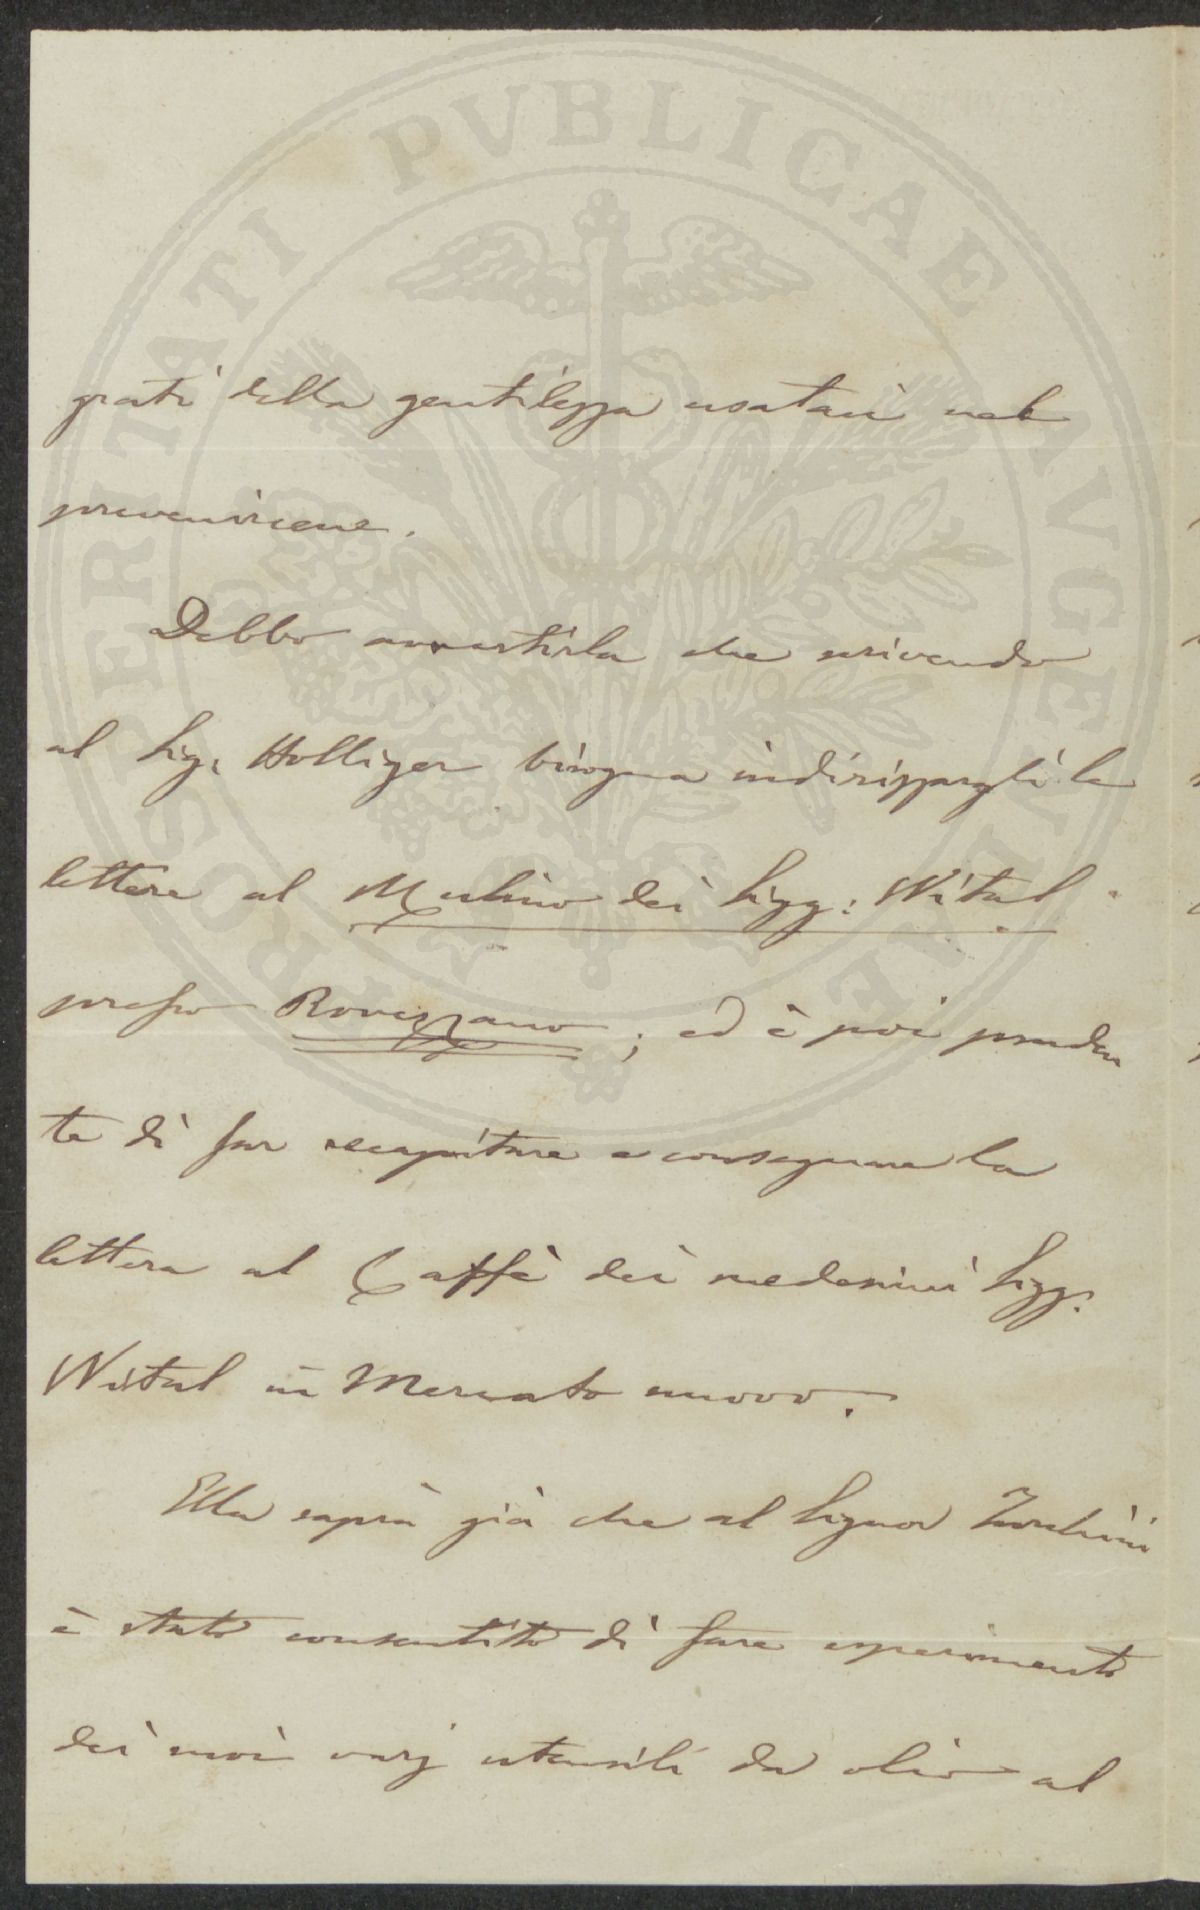 PROSPERITATI PVBLICAE AVGENDAE
grati della gentilezza usataci nel
prevenircene.
Debbo avvertirla che scrivendo
al Sig. Holliger bisogna indirizzargli le
lettere al Mulino dei Sigg: Wital
presso Rovezzano; ed è poi pruden
te di far recapitare e consegnare la
lettera al Caffè dei medesimi Sigg:
Wital in Mercato nuovo.
Ella saprà già che al Signor
è stato consentito di fare esperimento
dei suoi varj utensili da olio al